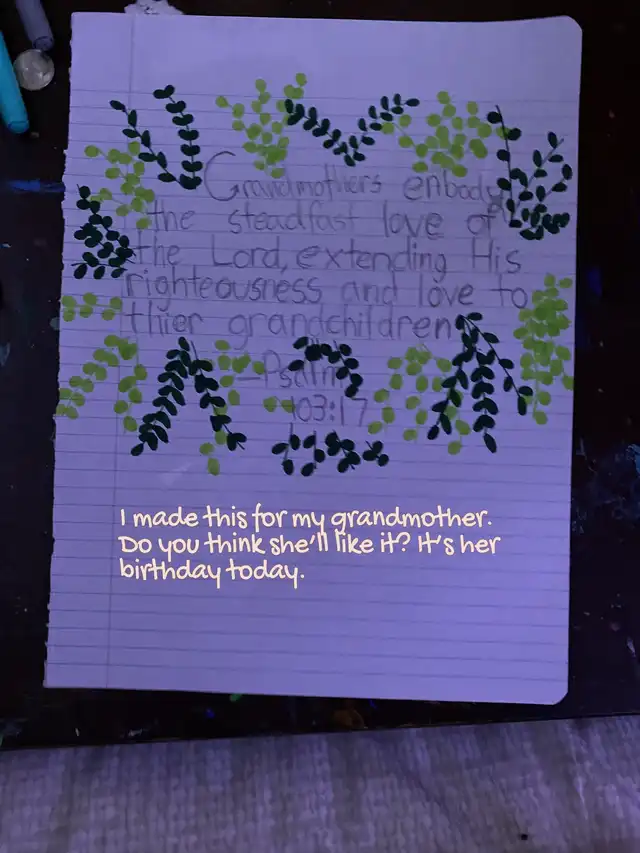 Grandmothers enbody
the steadfast love of
the Lord, extending His
righteousness and love to
thier grandchildren
—Psalm
103:17
I made this for my grandmother.
Do you think she'll like it? It's her
birthday today.